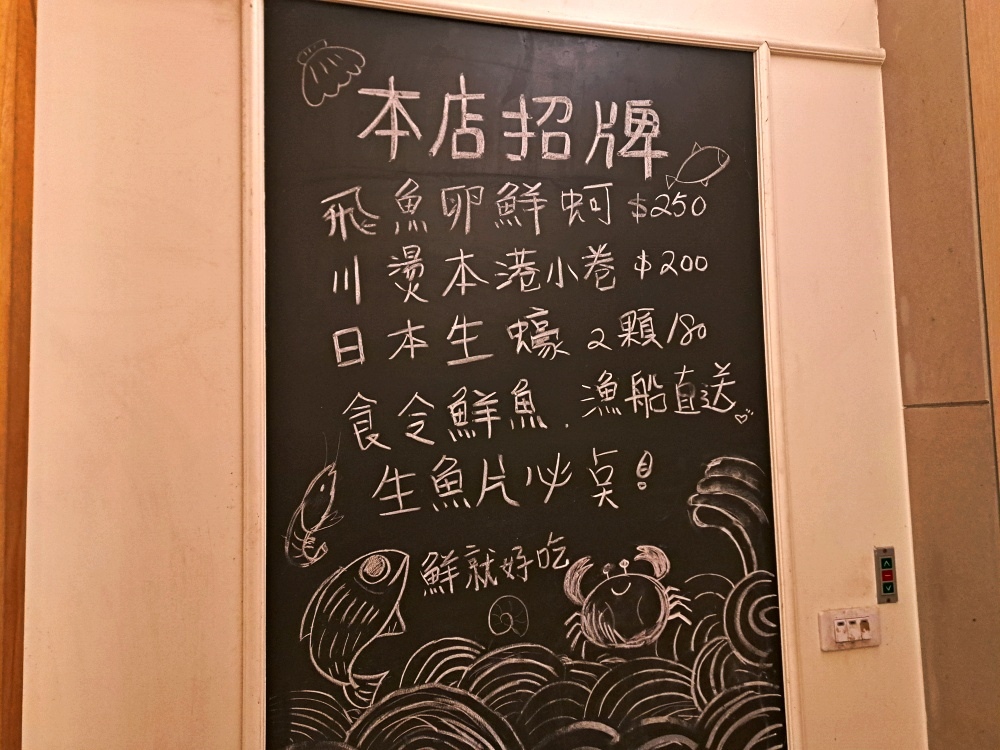 本店招牌
飛魚卵鮮蚵 $250
川燙本港小卷 $200
日本生蠔 2顆180
食令鮮魚.漁船直送
生魚片必点!
鮮就好吃